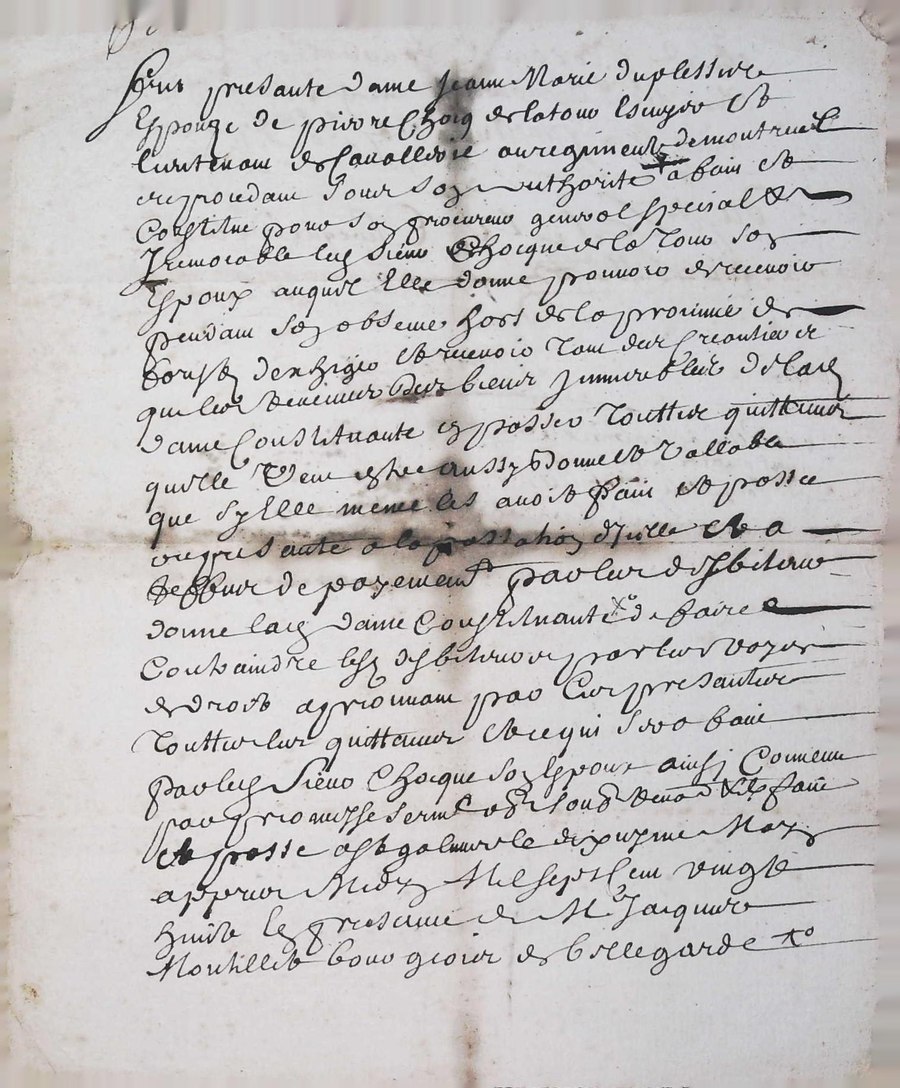 Fut presante dame Jeanne Marie duplessire
Espouze de pierre Chocq de latour Escuyer et
lieutenant de Cavallerie au regiment de montreuil
procedant sous son authorité a fait et
Constitue pour son procureur general special et
Irrevocable led Sieur Chocque de la Tour son
Espoux auquel Elle donne pouvoir de recevoir
pendant son absence hors de la province de
d'exhiger et recevoir tous des
que les des biens immeubles de lad
dame Constituante en passer Touttes quittances
quelle Veut estre aussy bonne et Vallable
que sy Elle meme les avoit fait et passée
presante a la passation d'icelle et a
deffaut de payement par les desbiteurs
donne lad dame Constituante de faire
Contraindre lesd desbiteurs par les voyes
de droit aprouvant par Ces presantes
Touttes les quittances et ce qui sera fait
par led Sieur Chocque son Espoux ainsi Convenu
par promesse serment fait
et passé may
apprès Midy Mil sept cent vingt
huict En presance de Me Jacques
Montillet bourgeois de bellegarde